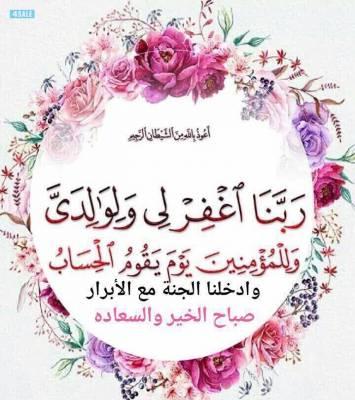 4SALE
أعوذ بالله من الشيطان الرجيم
رَبَّنَا ٱغْفِرْ لِى وَلِوَٰلِدَىَّ
وَلِلْمُؤْمِنِينَ يَوْمَ يَقُومُ الْحِسَابُ
وادخلنا الجنة مع الأبرار
صباح الخير والسعاده